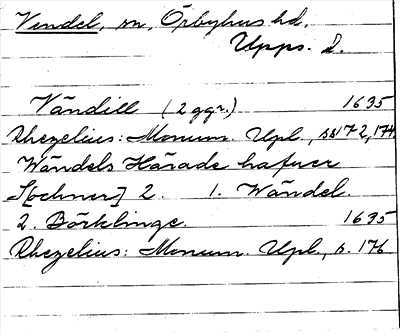 Vendel, sn, Örbyhus hd,
Upps. l.
Vändill (2 ggr.) 1635
Rhezelius: Monum. Upl., ss 172, 174
Wändels Härade hafuer
S[ochner] 2. 1. Wändel.
2. Börklinge. 1635
Rhezelius: Monum. Upl., s. 176